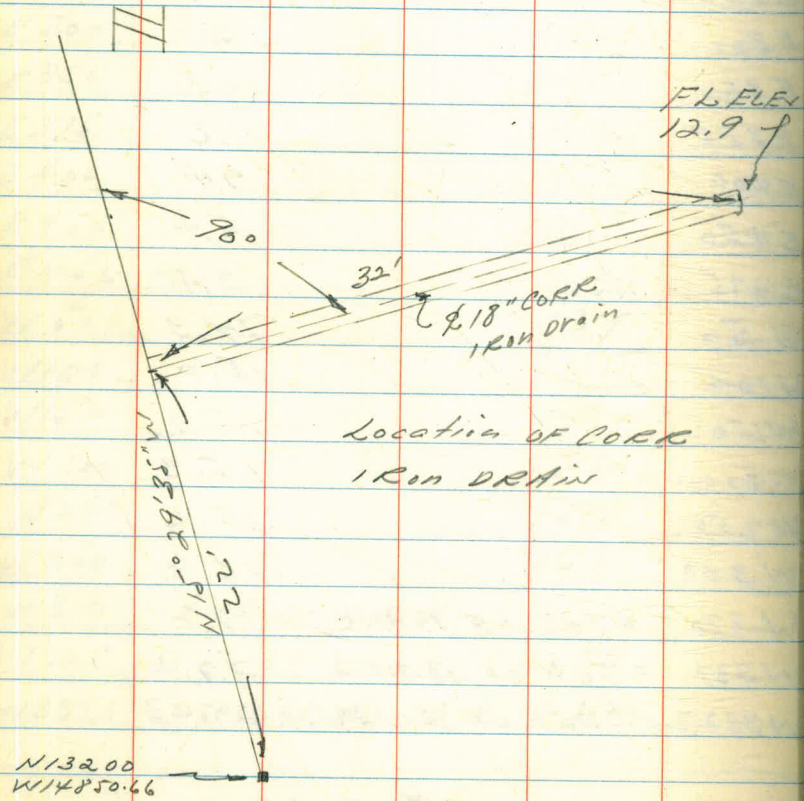 N
FL ELEV
12.9
90°
32'
℄ 18" CORR
IRon Drain
Location OF CORR
IRon DRAIN
22'
N 13200
W 14850.66